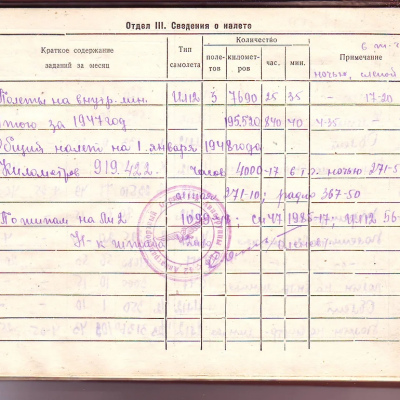 Отдел III. Сведения о налете
Краткое содержание заданий за месяц
Тип самолета
Количество
полетов
километр.
час.
мин.
Примечание
в т.ч.
ночью, слепой
Полеты на внутр. лин. Ил12 3 7690 25 35 - 17-20
Итого за 1947 год 195.520 840 40 4-35
Общий налет на 1. января 1948 года
Километров 919.422. часов 4000-17 в т.ч. ночью 271-5
371-10; радио 367-50
По типам на Ли2 1985-17, Ил12 56-